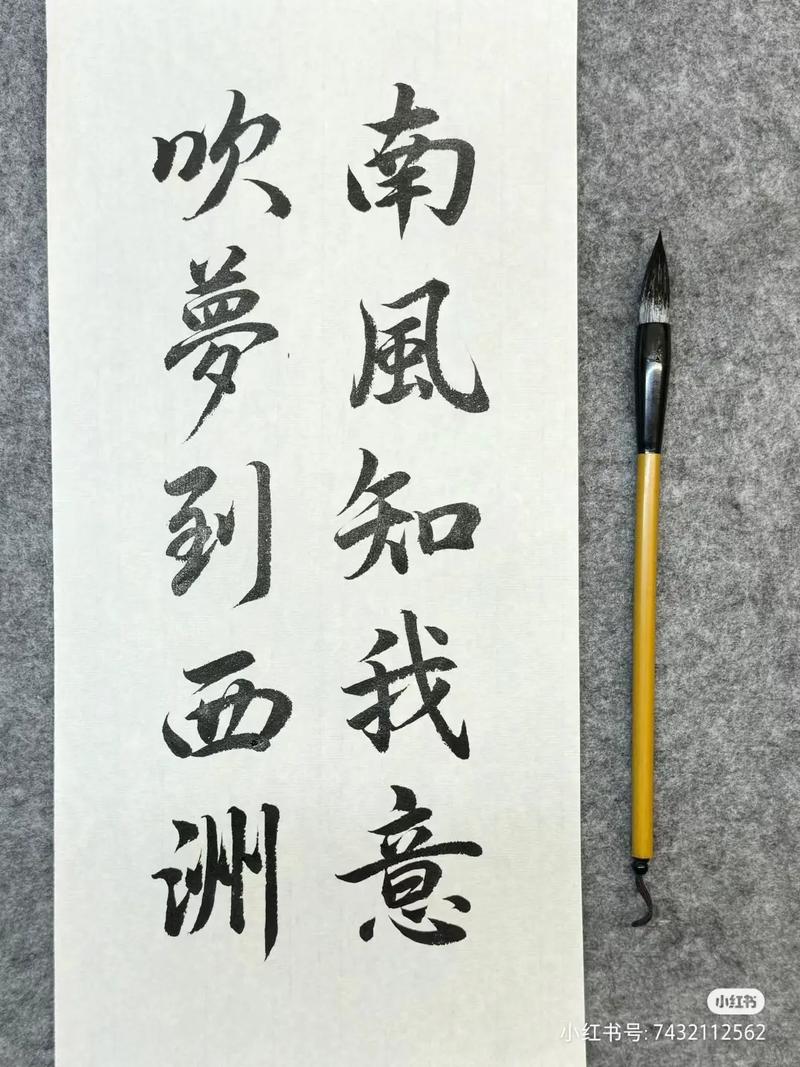 南風知我意
吹夢到西洲
小红书
小红书号: 7432112562